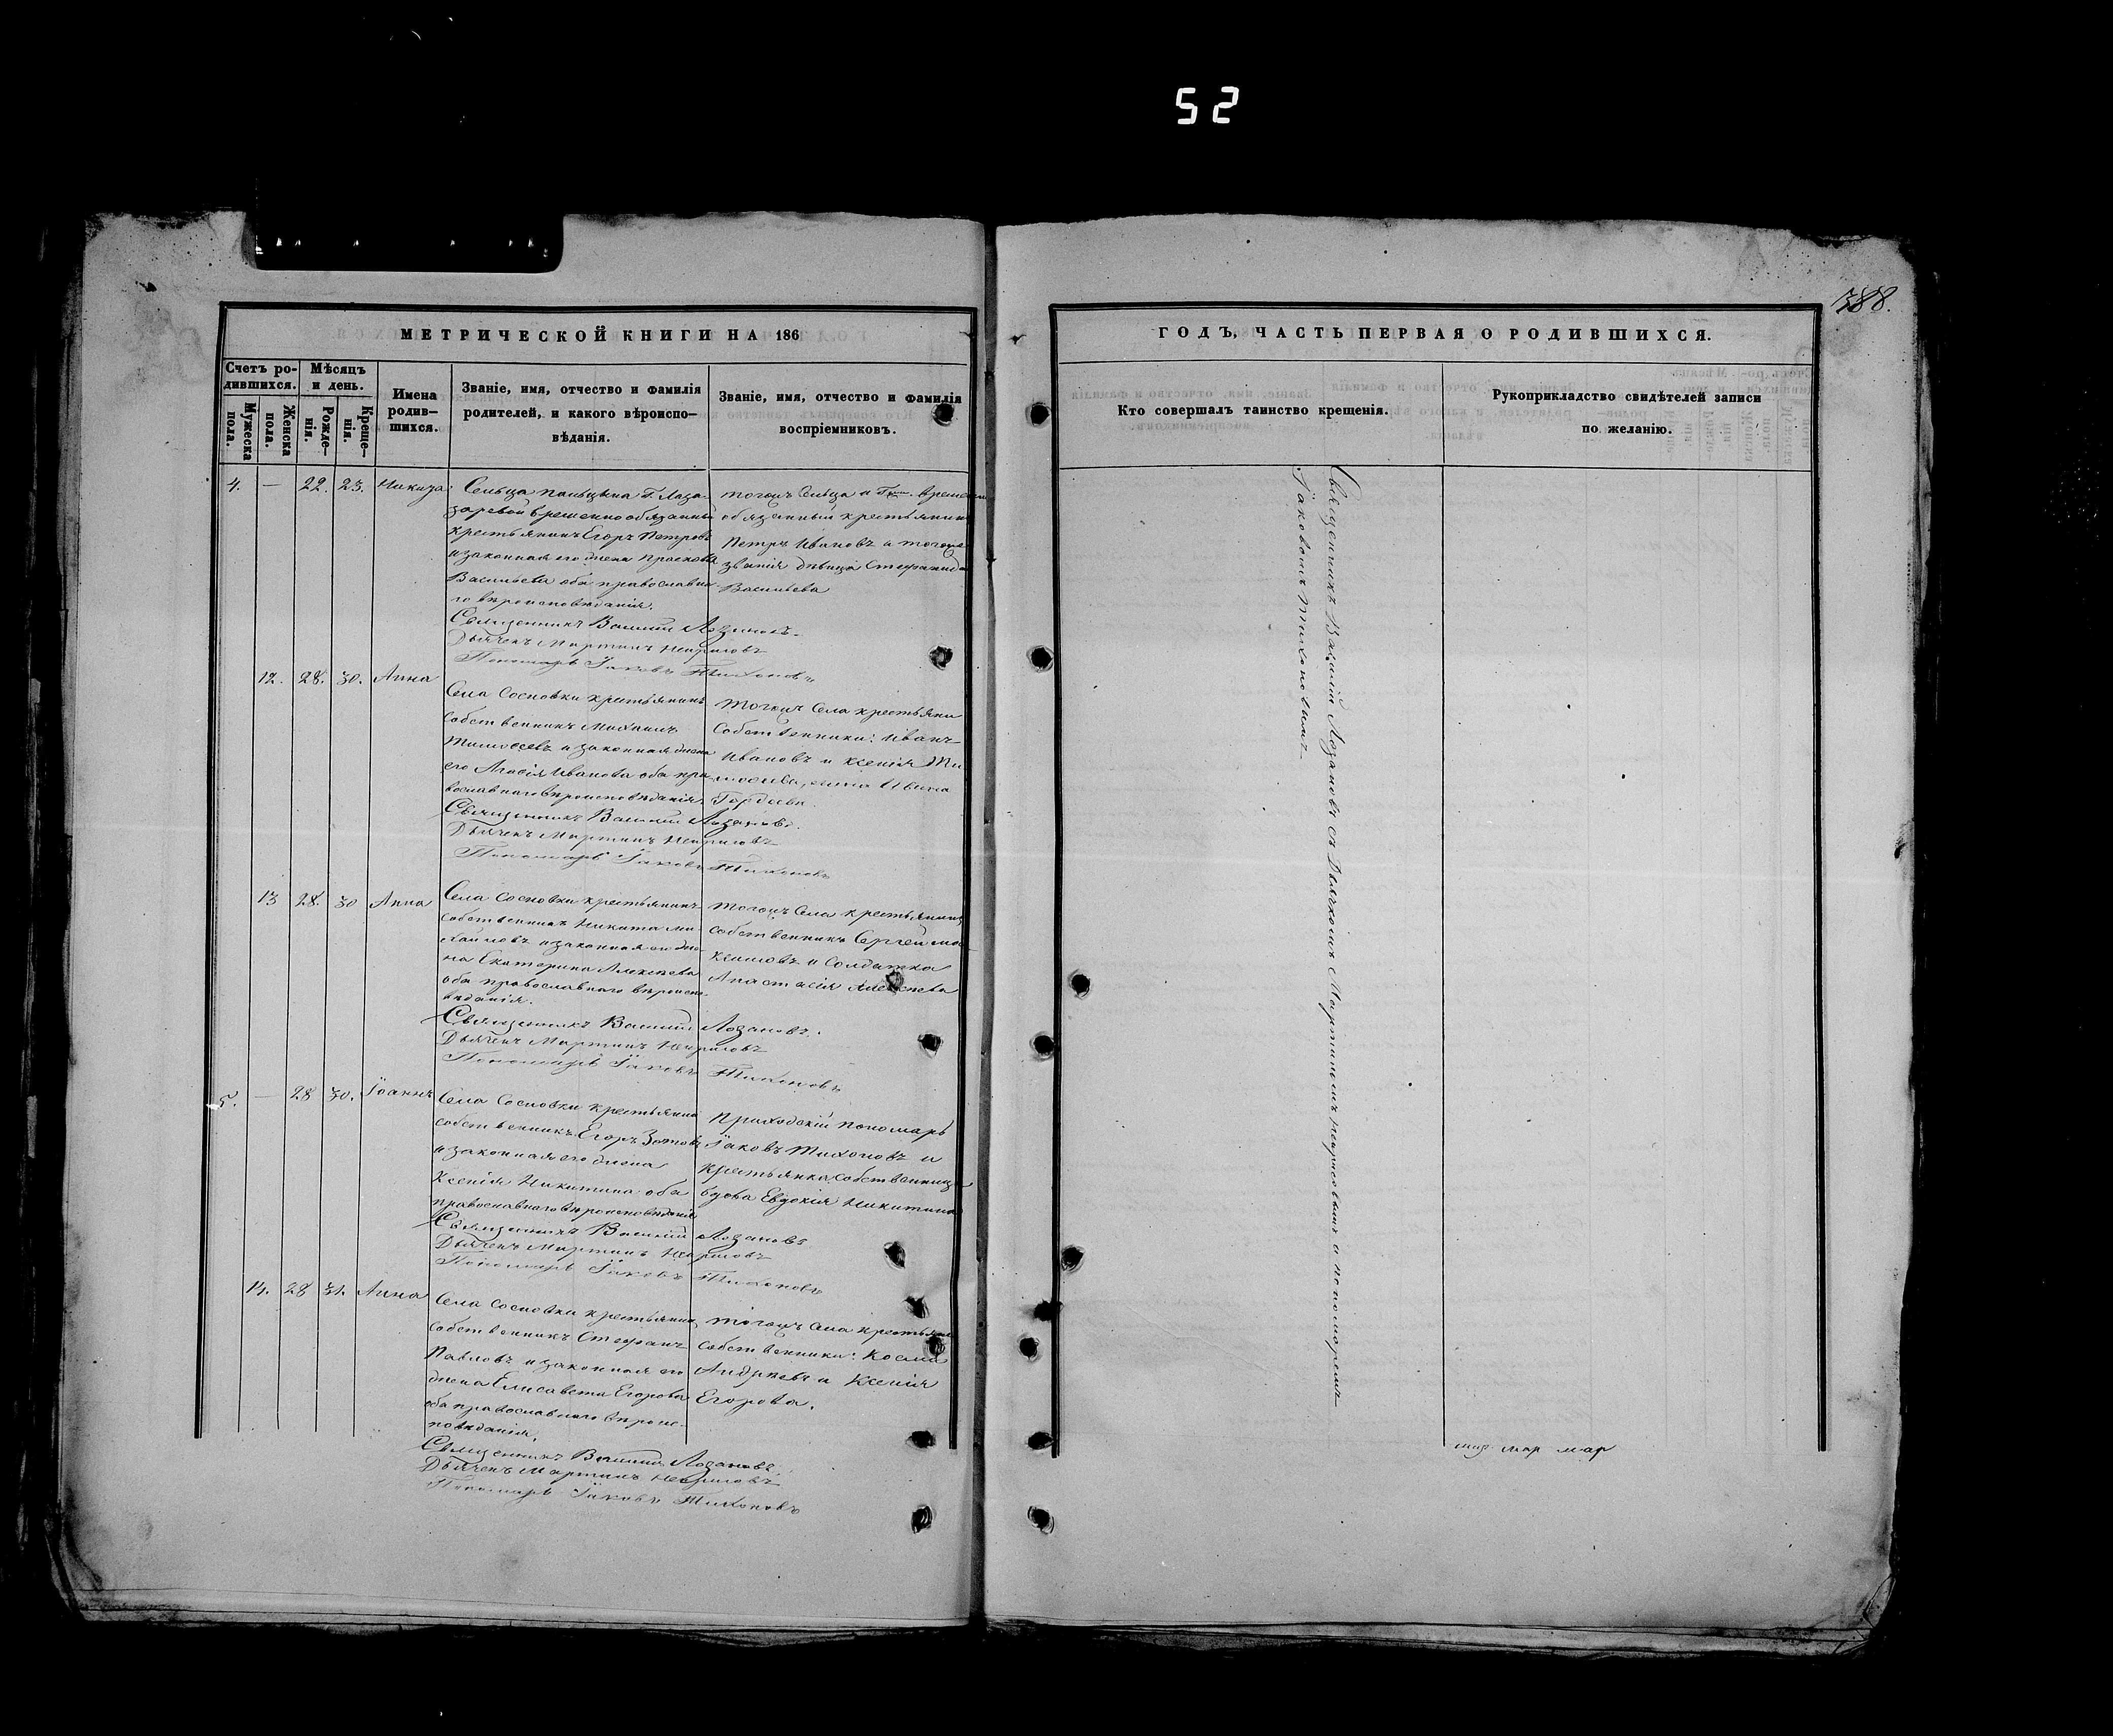 52
388.
МЕТРИЧЕСКОЙ КНИГИ НА 186
Счетъ ро-
дившихся.
Мужеска
пола.
Женска
пола.
Мѣсяцъ
и день.
Рожде-
нія.
Креще-
нія.
Имена
родив-
шихся.
Званіе, имя, отчество и фамилія
родителей, и какого вѣроиспо-
вѣданія.
Званіе, имя, отчество и фамилія
воспріемниковъ.
4. — 22. 23. Никита
Сельца Г. Лаза-
заревой временно обязанный
крестьянинъ Егоръ Петровъ
и законная его жена Прасковья
Васильева оба православна-
го вѣроисповѣданія.
тогожъ Сельца и временно
обязанный крестьянинъ
Петръ Ивановъ и тогоже
званія дѣвица Стефанида
Васильева
Священникъ Василій Лозановъ
Дьячекъ Мартинъ
Пономарь Іаковъ Тихоновъ
12. 28. 30. Анна
Села Сосновки крестьянинъ
собственникъ Михаилъ
Тимоѳеевъ и законная жена
его Иванова оба пра-
вославнаго вѣроисповѣданія
тогожъ Села крестьяни
собственники: Иванъ
Ивановъ и Ксенія Ти
Гордеева.
Священникъ Василій Лозановъ.
Дьячекъ Мартинъ
Пономарь Іаковъ Тихоновъ
13 28. 30 Анна
Села Сосновки крестьянинъ
собственникъ Никита Ми-
хайловъ и законная его же-
на Екатерина Алексѣева
оба православнаго вѣроиспо-
вѣданія.
тогожъ Села крестьянинъ
собственникъ Сергей Ма
ксимовъ и Солдатка
Анастасія Алексѣева
Священникъ Василій Лозановъ.
Дьячекъ Мартинъ
Пономарь Іаковъ Тихоновъ
5. — 28 30. Іоаннъ
Села Сосновки крестьянинъ
собственникъ Егоръ Зотовъ
и законная его жена
Ксенія Никитина оба
православнаго вѣроисповѣданія
Приходскій пономарь
Іаковъ Тихоновъ и
крестьянка собственница
вдова Евдокія Никитина
Священникъ Василій Лозановъ
Дьячекъ Мартинъ
Пономарь Іаковъ Тихоновъ
14. 28 31. Анна
Села Сосновки крестьянинъ
собственникъ Стефанъ
Павловъ и законная его
жена Елисавета Егорова
оба православнаго вѣроис-
повѣданія.
тогожъ Села крестьяне
собственники: Косма
Андрѣевъ и Ксенія
Егорова.
Священникъ Василій Лозановъ.
Дьячекъ Мартинъ
Пономарь Іаковъ Тихоновъ
ГОДЪ, ЧАСТЬ ПЕРВАЯ О РОДИВШИХСЯ.
Кто совершалъ таинство крещенія.
Рукоприкладство свидѣтелей записи
по желанію.
Священникъ Василій Лозановъ съ Дьячкомъ Мартиномъ и пономаремъ
Іаковомъ Тихоновымъ
мар мар